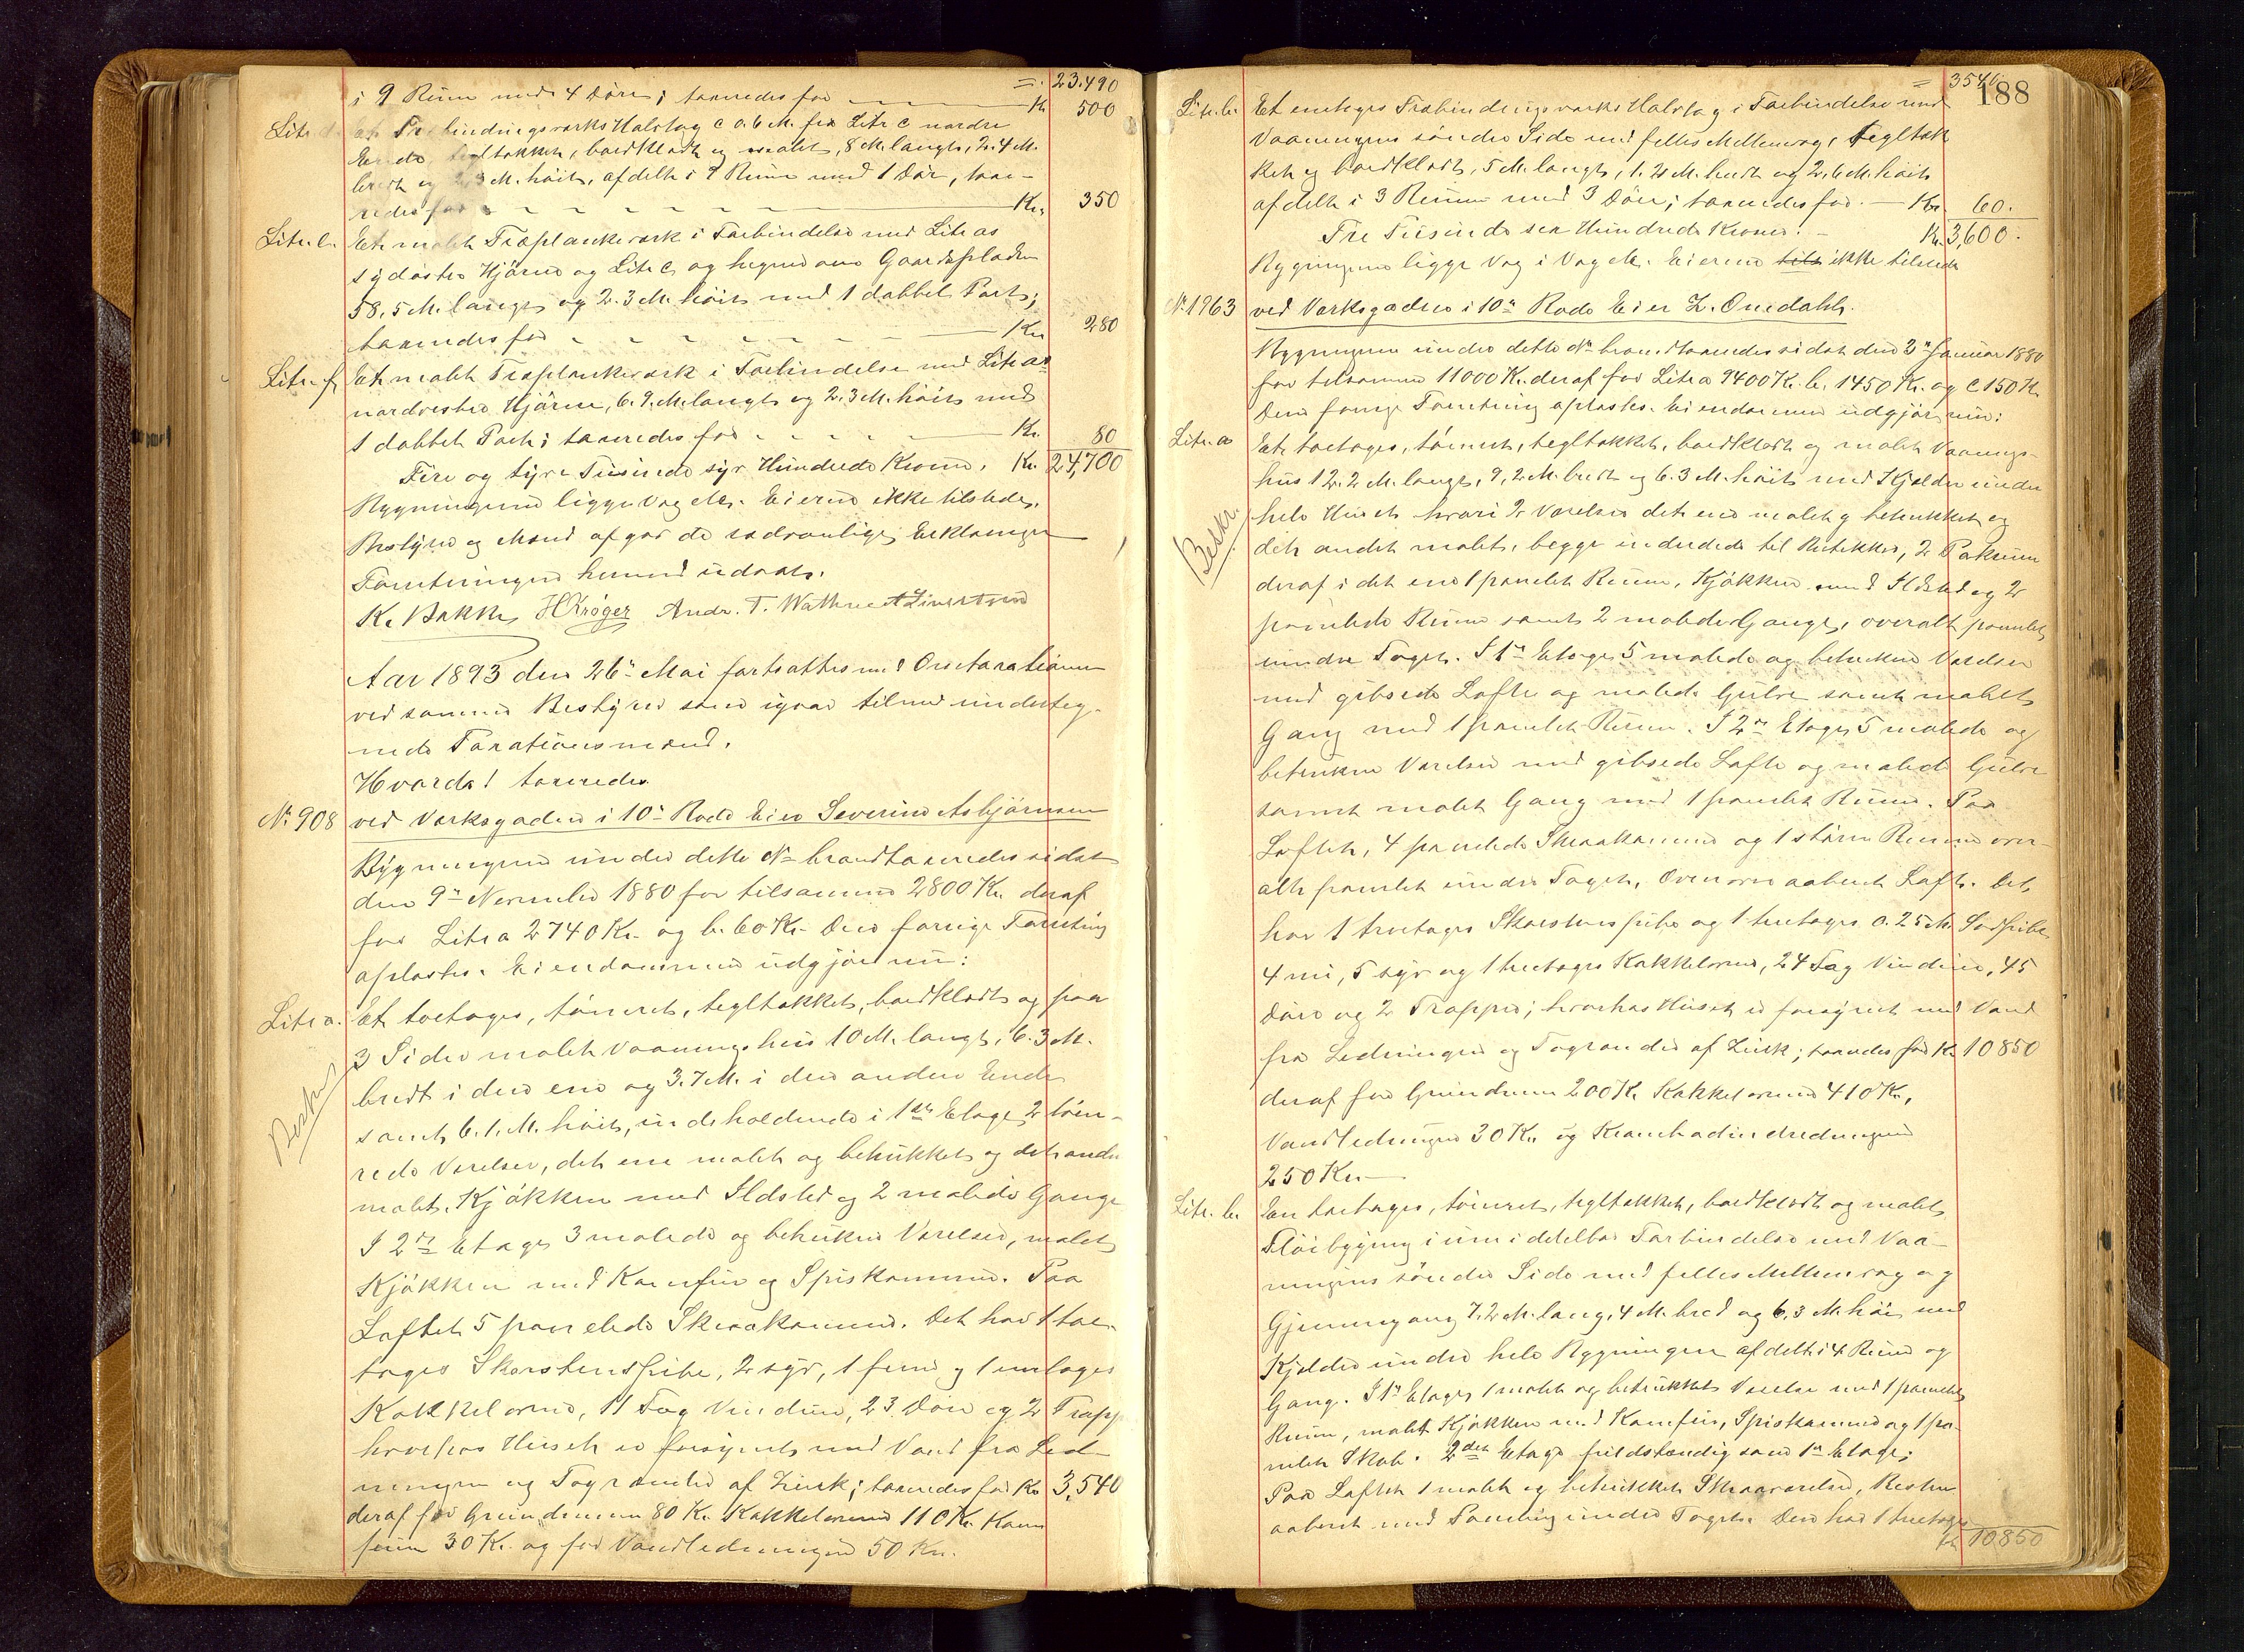 = 23.490
i 9 Rum med 4 Döre; taxeredes for Kr. 500
Litr. d. Et Træbindingsværks Halvtag c 0.6 M. fra Litr c nordre
Ende, tegltækket, bordklædt og malet, 8 M. langt, 2.4 M.
bredt og 2,3 M. höit, afdelt i 9 Rum med 1 Dör, taxe-
redes for Kr. 350
Litr. e. Et malet Træplankeværk i Forbindelse med Litr as
sydöstre Hjörne og Litr c, og hegner om Gaardspladsen
58,5 M. langt og 2.3 M. höit med 1 dobbelt Port;
taxeredes for Kr. 280
Litr. f. Et malet Træplankeværk i Forbindelse med Litr as
nordvestre Hjörne, 6.9. M. langt og 2.3 M. höit med
1 dobbelt Port; taxeredes for Kr. 80
Fire og tyve Tusinde syv Hundrede Kroner. Kr. 24,700
Bygningerne ligge Vag M. Eieren ikke tilstede.
Bestyrer og Mænd afgav de sædvanlige Erklæringer
Taxtningen herved udsat.
K. Bakke HKröger Andr. T. Wathne
Aar 1893 den 26de Mai fortsattes med Omtaxationen
ved samme Bestyrer som igaar tilmed underteg-
nede Taxationsmænd.
Hvorda! taxeredes
No. 908 ved Værksgaden i 10de Rode Eier Severin Asbjörnsen
Bygningerne under dette No brandtaxeredes sidst
den 9de November 1880 for tilsammen 2800 Kr. deraf
for Litr a 2740 Kr. og b. 60 Kr. Den forrige Taxtning
oplæstes. Eiendommen udgjör nu:
Litr a. Et toetages, tömret, tegltækket, bordklædt og paa
3 Sider malet Vaaningshus 10 M. langt, 6.3 M.
bredt i den ene og 3.7 M. i den anden Ende
samt 6.1. M. höit, indeholdende i 1ste Etage 2 töm-
rede Værelser, det ene malet og betrukket og det andet
malet, Kjökken med Ildsted og 2 malede Gange
I 2den Etage 3 malede og betrukne Værelser, malet
Kjökken med Komfur og Spiskammer. Paa
Loftet 5 panelede Skraakammere. Det har 1 toe-
tages Skorstenspibe, 2 syv, 1 fem og 1 en etages
Kakkelovne, 11 Fag Vinduer, 23 Döre og 2 Trapp
hvorhos Huset er forsynet med Vand fra Led-
ningen og Tagrender af Zink; taxeredes for Kr. 3,540
deraf for Grundmuren 80 Kr. Kakkelovnene 110 Kr. Kom
furen 30 Kr. og for Vandledningen 50 Kr.
Beskr.
188
= 3540.
Litr. b. Et enetages Træbindingsværks Halvtag i Forbindelse med
Vaaningens söndre Side med felles Mellemvæg, tegltæk
ket og bordklædt, 5 M. langt, 1.2 M. bredt og 2,6 M. höit
afdelt i 3 Rum med 3 Döre; taxeredes for. Kr. 60.
Tre Tusinde sex Hundrede Kroner. Kr. 3,600.
Bygningerne ligge Vag i Vag M. Eieren tils ikke tilstede
No. 1963 ved Værksgaden i 10de Rode Eier Z. Onedahl.
Bygningerne under dette No brandtaxeredes sidst den 3de Januar 1880
for tilsammen 11000 Kr. deraf for Litr a 9400 Kr. b. 1450 Kr. og c 150 Kr
Den forrige Taxtning oplæstes. Eiendommen udgjör nu:
Litr. a Et toetages, tömret, tegltækket, bordklædt og malet Vaanings-
hus 12.2 M. langt, 9,2 M. bredt og 6.3 M. höit med Kjelder under
hele Huset hvori 2 Værelser det ene malet og betrukket og
det andet malet, begge indredede til Butikker, 2 Pakrum
deraf i det ene 1 panelet Rum, Kjökken med Ildsted og 2
panelede Rum samt 2 malede Gange, overalt panelet
under Taget. I 1ste Etage 5 malede og betrukne Værelser
med gibsede Lofte og malede Gulve samt malet
Gang med 1 panelet Rum. I 2den Etage 5 malede og
betrukne Værelser med gibsede Lofte og malede Gulve
samt malet Gang med 1 panelet Rum. Paa
Loftet, 4 panelede Skraakammere og 1 större Rum over-
alt panelet under Taget, Ovenover aabent Loft. Det
har 1 treetages Skorstenspibe og 1 treetages 0.25 M. Sodpibe
4 ni, 5 syv og 1 treetages Kakkelovne, 24 Fag Vinduer, 45
Döre og 2 Trapper; hvorhos Huset er forsynet med Vand
fra Ledningen og Tagrender af Zink; taxeredes for Kr. 10850
deraf for Grundmuren 200 Kr. Kakkelovnene 410 Kr.,
Vandledningen 30 Kr. og Krambodindredningen
250 Kr.
Litr. b. En toetages, tömret, tegltækket, bordklædt og malet
Flöibygning i umiddelbar Forbindelse med Vaa-
ningens söndre Side med felles Mellemvæg og
Gjennemgang 7.2 M. lang, 4 M. bred og 6,3 M. höi med
Kjelder under hele Bygningen afdelt i 4 Rum og
Gang. I 1ste Etage 1 malet og betrukket Værelse med 1 panelet
Rum, malet Kjökken med Komfur, Spiskammer og 1 pa-
nelet Skab. 2den Etage fuldstændig som 1ste Etage;
Paa Loftet 1 malet og betrukket Skraaværelse, Resten
aabent med Paneling under Taget. Den har 1 treetages
Kr. 10850
Beskr.